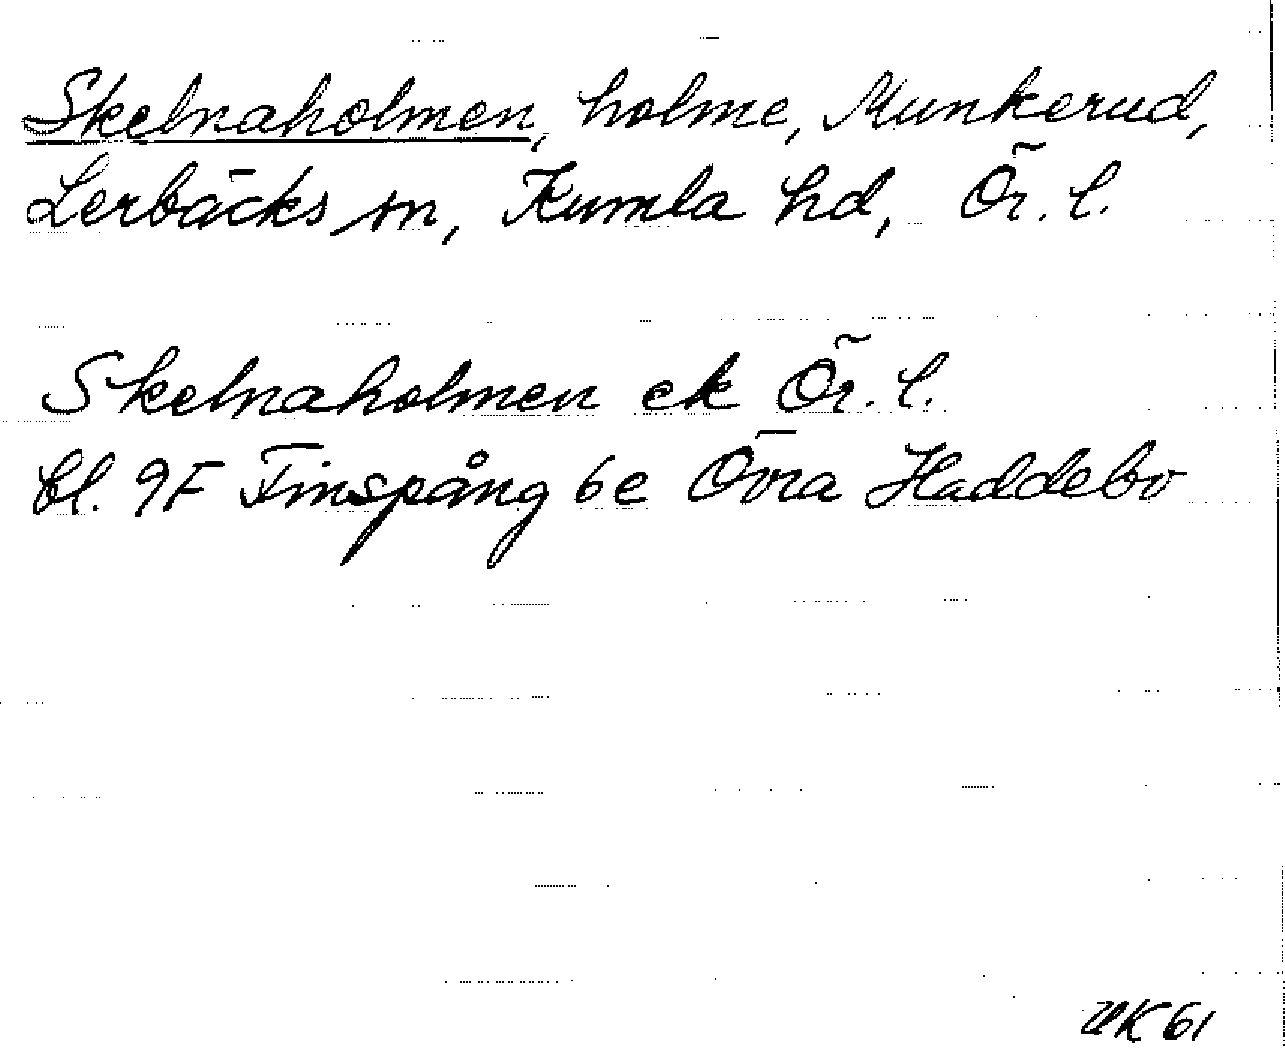 Skelnaholmen, holme, Munkerud,
Lerbäcks sn, Kumla hd, Ör. l.
Skelnaholmen ek Ör. l.
bl. 9F Finspång 6e Övra Haddebo
UK 61